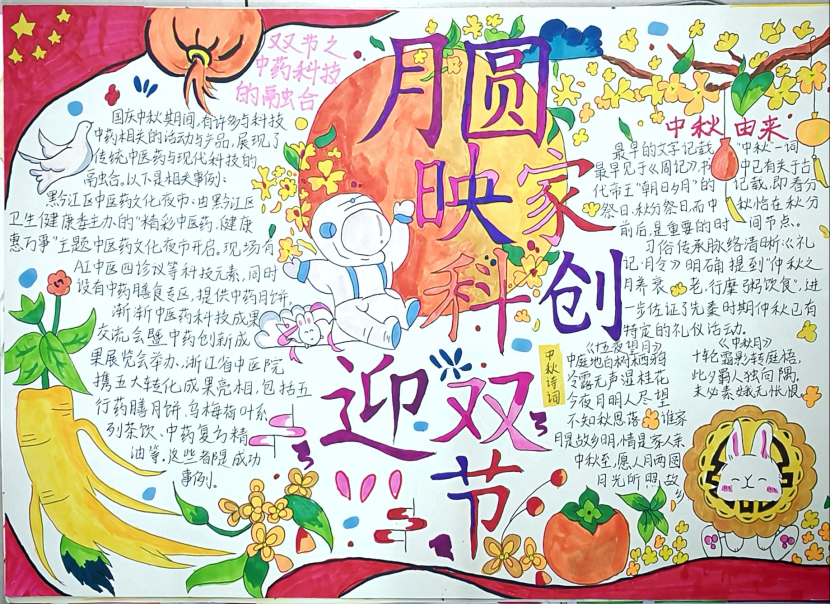 月圆
映家
科创
迎双
节
双双节之
中药科技
的融合
国庆中秋期间,有许多与科技
中药相关的活动与产品,展现了
传统中医药与现代科技的
融合。以下是相关事例:
黔江区中医药文化夜市:由黔江区
卫生健康委主办的“精彩中医药,健康
惠万事”主题中医药文化夜市开启。现场有
AI中医四诊议等科技元素,同时
设有中药膳食专区,提供中药月饼。
浙浙中医药科技成果
交流会暨中药创新成
果展览会举办,浙江省中医院
携五大转化成果亮相,包括五
行药膳月饼、乌梅荷叶系
列茶饮、中药复方精
油等。这些都是成功
事例。
中秋由来
最早的文字记载 “中秋”一词
最早见于《周记》,书中已有关于古
代帝王“朝日夕月”的记载,即春分
祭日、秋分祭日,而中秋恰在秋分
前后,是重要的时间节点。
习俗传承脉络清晰《礼
记·月令》明确提到“仲秋之
月养衰老,行糜粥饮食”,进
一步佐证了先秦时期仲秋已有
特定的礼仪活动。
中秋诗词
《十五夜望月》
中庭地白树栖鸦
冷露无声湿桂花
今夜月明人尽望
不知秋思落谁家
月是故乡明,情是家人亲
中秋至,愿人月两圆
月光所照故
乡
《中秋月》
十轮霜影转庭梧,
此夕羁人独向隅,
未必素娥无怅恨